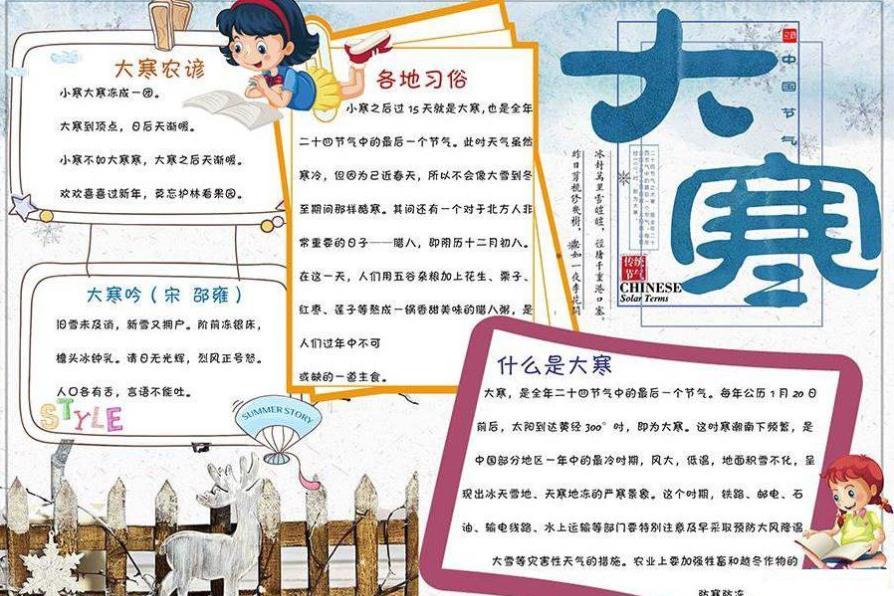 大寒农谚
小寒大寒冻成一团。
大寒到顶点,日后天渐暖。
小寒不如大寒寒,大寒之后天渐暖。
欢欢喜喜过新年,莫忘护林看果园。
大寒吟(宋 邵雍)
旧雪未及消,新雪又拥户。阶前冻银床,
檐头冰钟乳。请日无光辉,烈风正号怒。
人口各有舌,言语不能吐。
STYLE
SUMMER STORY
各地习俗
小寒之后过15天就是大寒,也是全年
二十四节气中的最后一个节气。此时天气虽然
寒冷,但因为已近春天,所以不会像大雪到冬
至期间那样酷寒。其间还有一个对于北方人非
常重要的日子——腊八,即阴历十二月初八。
在这一天,人们用五谷杂粮加上花生、栗子、
红枣、莲子等熬成一锅香甜美味的腊八粥,是
人们过年中不可
或缺的一道主食。
大寒
中国节气
传统
节气
CHINESE
Solar Terms
什么是大寒
大寒,是全年二十四节气中的最后一个节气。每年公历1月20日
前后,太阳到达黄经300°时,即为大寒。这时寒潮南下频繁,是
中国部分地区一年中的最冷时期,风大,低温,地面积雪不化,呈
现出冰天雪地、天寒地冻的严寒景象。这个时期,铁路、邮电、石
油、输电线路、水上运输等部门要特别注意及早采取预防大风降温
大雪等灾害性天气的措施。农业上要加强牲畜和越冬作物的
防寒防冻。